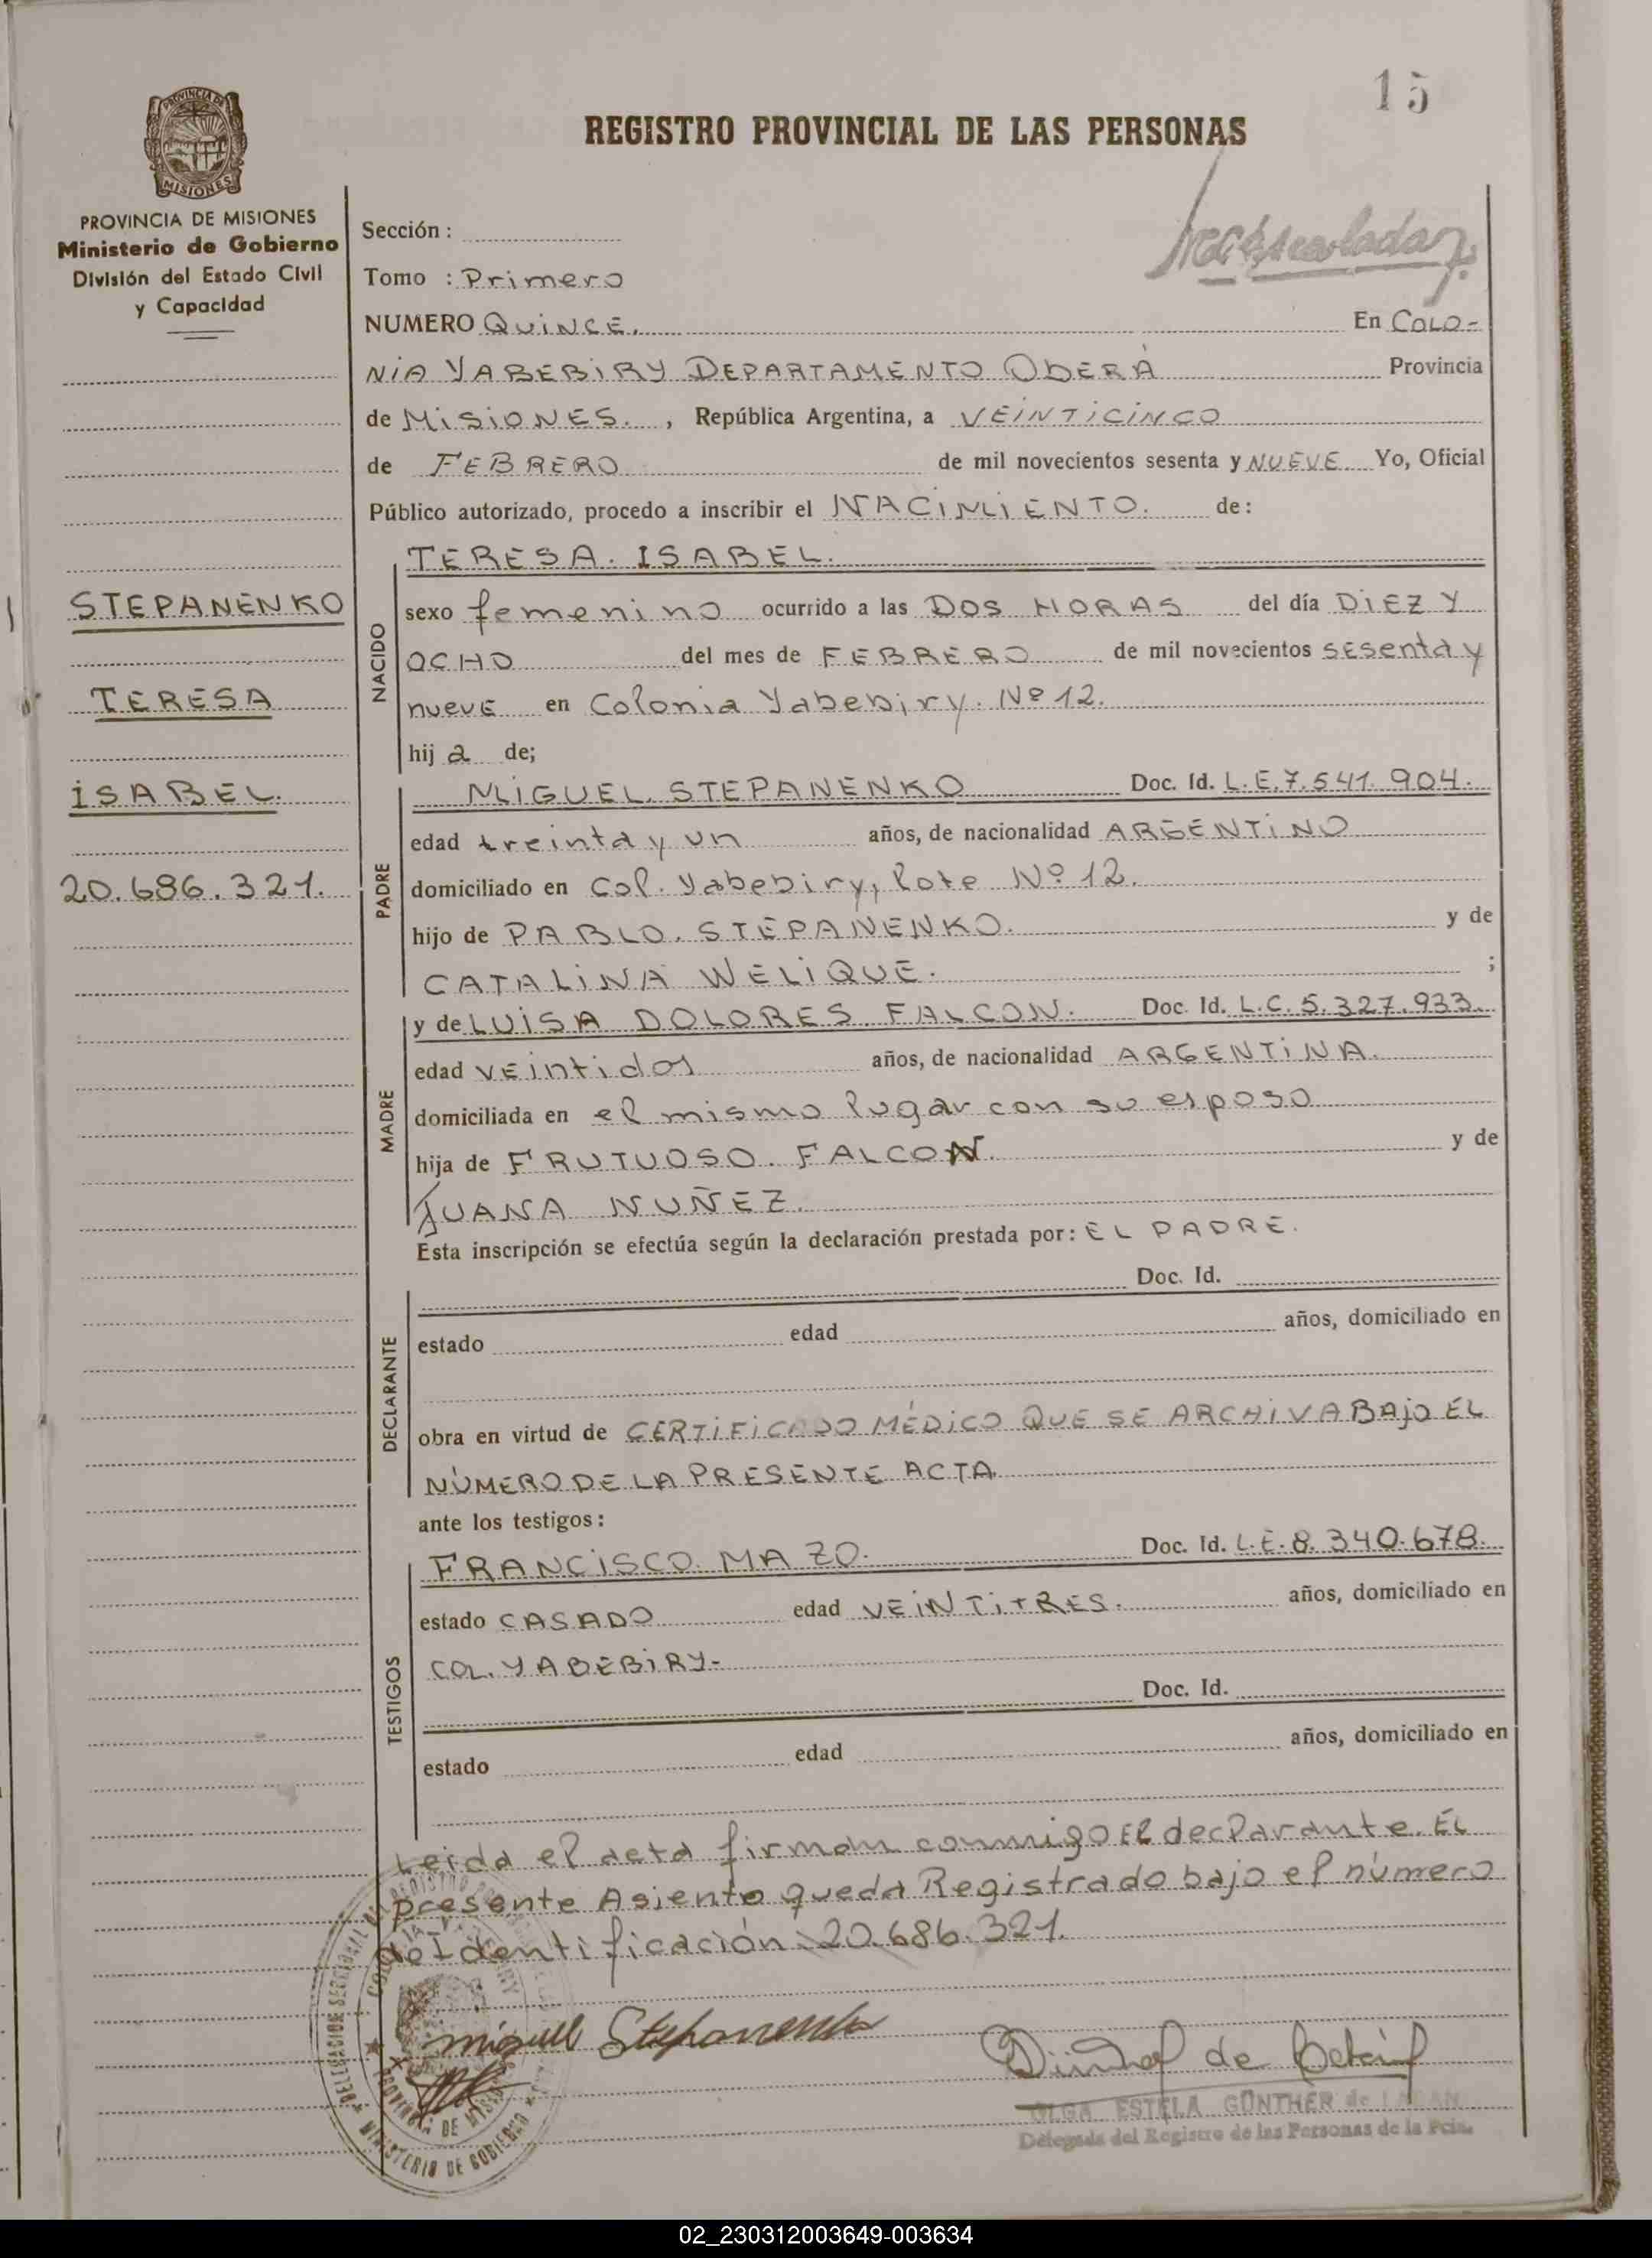 15
REGISTRO PROVINCIAL DE LAS PERSONAS
PROVINCIA DE
MISIONES
PROVINCIA DE MISIONES
Ministerio de Gobierno
División del Estado Civil
y Capacidad
STEPANENKO
TERESA
ISABEL.
20.686.321.
Sección :
Tomo : Primero
NUMERO QUINCE. En COLO-
NIA YABEBIRY DEPARTAMENTO OBERÁ Provincia
de MISIONES. , República Argentina, a VEINTICINCO
de FEBRERO de mil novecientos sesenta y NUEVE Yo, Oficial
Público autorizado, procedo a inscribir el NACIMIENTO. de:
NACIDO
TERESA. ISABEL.
sexo femenino ocurrido a las DOS HORAS del día DIEZ Y
OCHO del mes de FEBRERO de mil novecientos sesenta y
nueve en Colonia Yabebiry. Nº 12.
hij a de;
PADRE
MIGUEL. STEPANENKO Doc. Id. L.E.7.541.904.
edad treinta y un años, de nacionalidad ARGENTINO
domiciliado en Col. Yabebiry, lote Nº 12.
hijo de PABLO. STEPANENKO. y de
CATALINA WELIQUE. ;
MADRE
y de LUISA DOLORES FALCON. Doc. Id. L.C. 5.327.933.
edad veintidos años, de nacionalidad ARGENTINA.
domiciliada en el mismo lugar con su esposo
hija de FRUTUOSO. FALCON. y de
JUANA NUÑEZ.
Esta inscripción se efectúa según la declaración prestada por: EL PADRE.
DECLARANTE
Doc. Id.
estado edad años, domiciliado en
obra en virtud de CERTIFICADO MÉDICO QUE SE ARCHIVA BAJO EL
NÚMERO DE LA PRESENTE ACTA.
ante los testigos:
TESTIGOS
FRANCISCO MAZO. Doc. Id. L.E. 8.340.678.
estado CASADO edad VEINTITRES. años, domiciliado en
COL. YABEBIRY-
Doc. Id.
estado edad años, domiciliado en
Leida el acta firman conmigo El declarante. El
presente Asiento queda Registrado bajo el número
de Identificación 20.686.321.
miguel Stepanenko
MINISTERIO DE GOBIERNO
OLGA ESTELA GÜNTHER de
Delegada del Registro de las Personas de la Pcia.
02_230312003649-003634